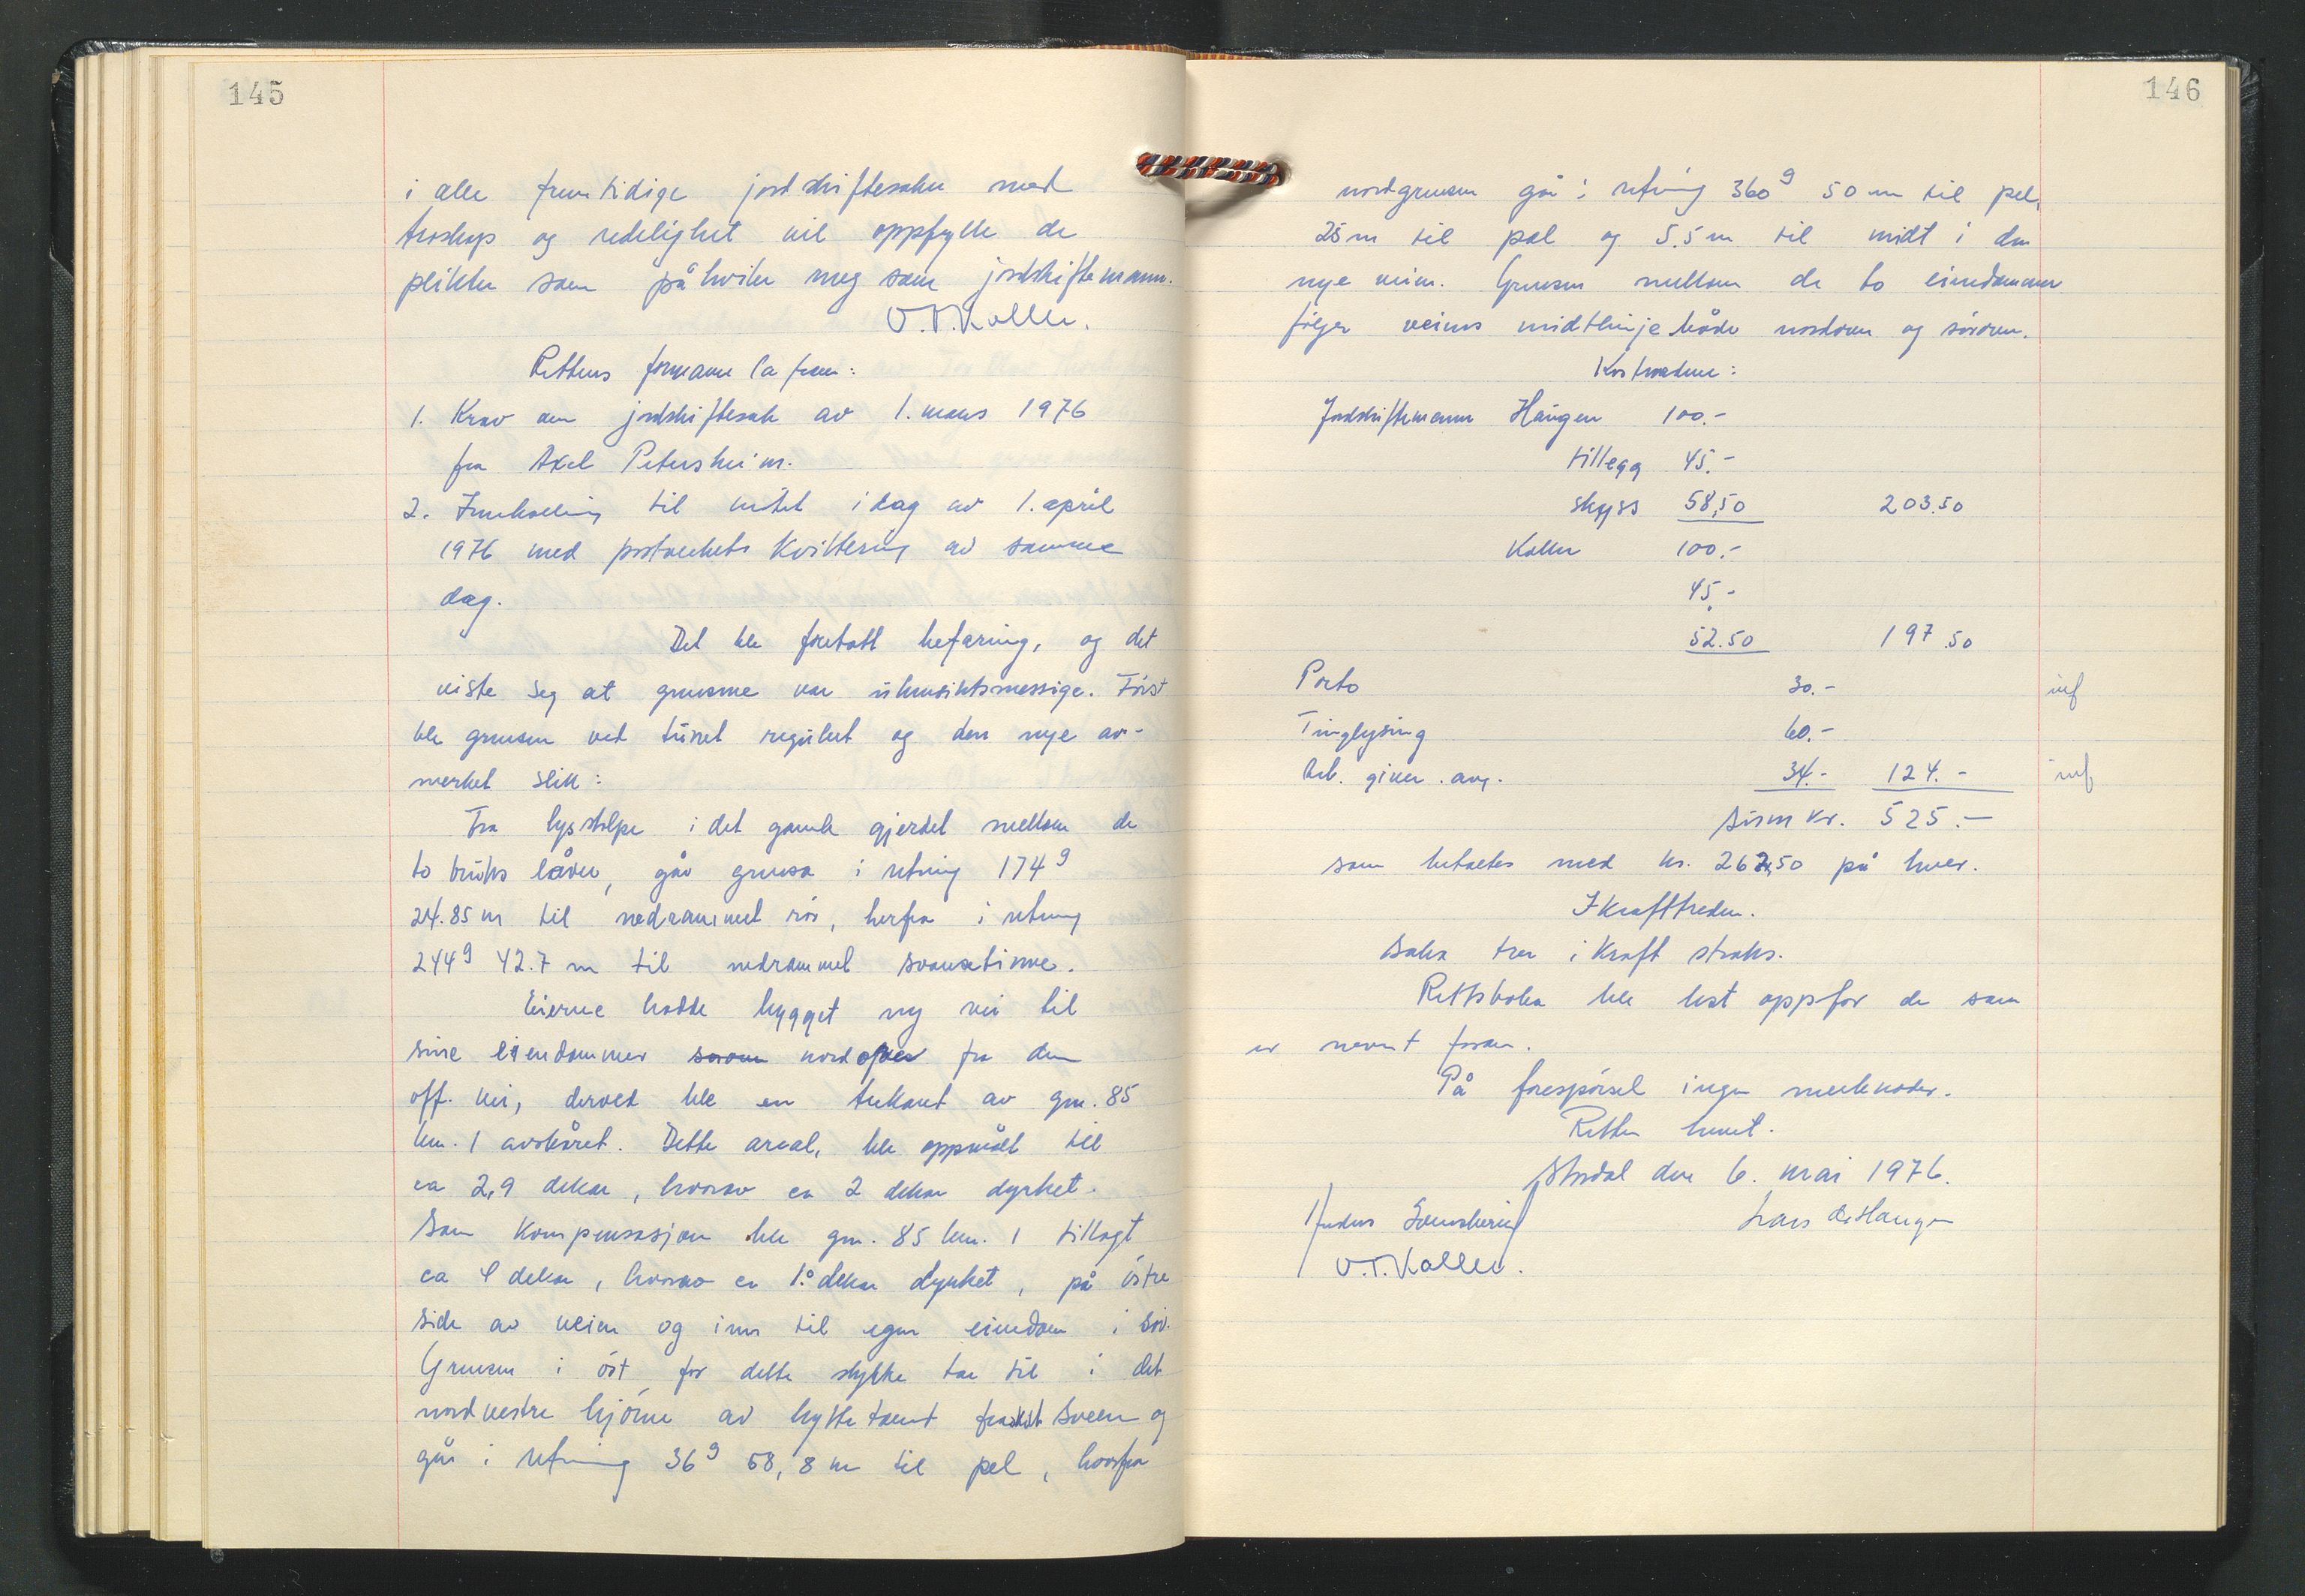 145
i alle fremtidige jordskiftesaker med
troskap og redelighet vil oppfylle de
plikter som påhviler meg som jordskiftemann.
O.T. Koller.
Rettens formann la frem:
1. Krav om jordskiftesak av 1. mars 1976
fra Axel Petersheim.
2. Innkalling til møtet idag av 1. april
1976 med postverkets kvittering av samme
dag.
Det ble foretatt befaring, og det
viste seg at grensene var uhensiktsmessige. Først
ble grensen ved tunet regulert og den nye av-
merket slik:
Fra lysstolpe i det gamle gjerdet mellom de
to bruks låver, går grensa i retning 174g
24.85 m til nedrammet rör, herfra i retning
244g 42.7 m til nedrammet
Eierne hadde bygget ny vei til
sine eiendommer nordover fra den
off. vei, derved ble en trekant av gnr. 85
bnr. 1 avskåret. Dette areal, ble oppmålt til
ca 2,9 dekar, hvorav ca 2 dekar dyrket.
Som kompensasjon ble gnr. 85 bnr. 1 tillagt
ca 4 dekar, hvorav ca dekar dyrket, på östre
side av veien og inn til egen eiendom i sör.
Grensen i öst for dette stykke tar til i det
nordvestre hjörne av hyttetomt Sveen og
går i retning 36g 58,8 m til pel, hvorfra
146
nordgrensen går i retning 360g 50 m til pel,
25 m til pæl og 5.5 m til midt i den
nye veien. Grensen mellom de to eiendommer
fölger veiens midtlinje både nordover og sörover.
Kostnadene:
Jordskiftemann Haugen 100.-
tillegg 45.-
skyss 58,50 203.50
Koller 100.-
45.-
52.50 197.50
Porto 30.- inf
Tinglysing 60.-
Arb. giver. avg. 34.- 124.- inf
Sum kr. 525.-
som betales med kr. 262,50 på hver.
Ikrafttreden.
Saka trer i kraft straks.
Rettsboka ble lest opp for de som
er nevnt foran.
På forespørsel ingen merknader.
Retten hevet.
Stordal den 6. mai 1976.
Lars Haugen
O.T. Koller.